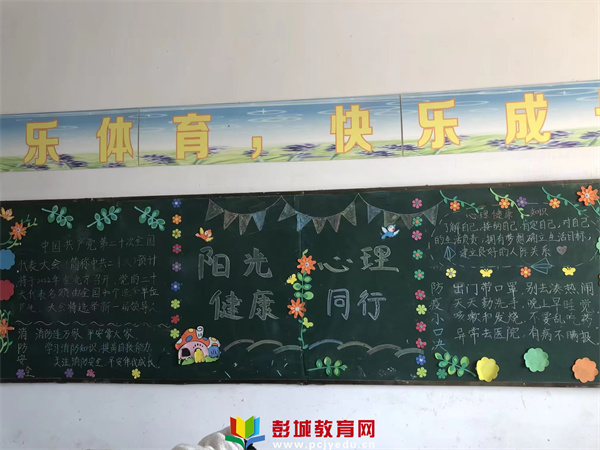 乐体育，快乐成
中国共产党第二十次全国
代表大会
消防安全
消防连万家，平安常人家
学习消防知识，提高自救能力
关注消防安全，平安伴我成长
阳光心理
健康同行
心理健康 知识
了解自己，接纳自己，肯定自己，对自己
的生活负责，拥有梦想，确立生活目标，
建立良好的人际关系
防疫小口决
出门带口罩，别去凑热闹
天天勤洗手，晚上早睡觉
咳嗽和发烧，不要乱吃药
异常去医院，有病不瞒报
彭城教育网
www.pcjyedu.cn